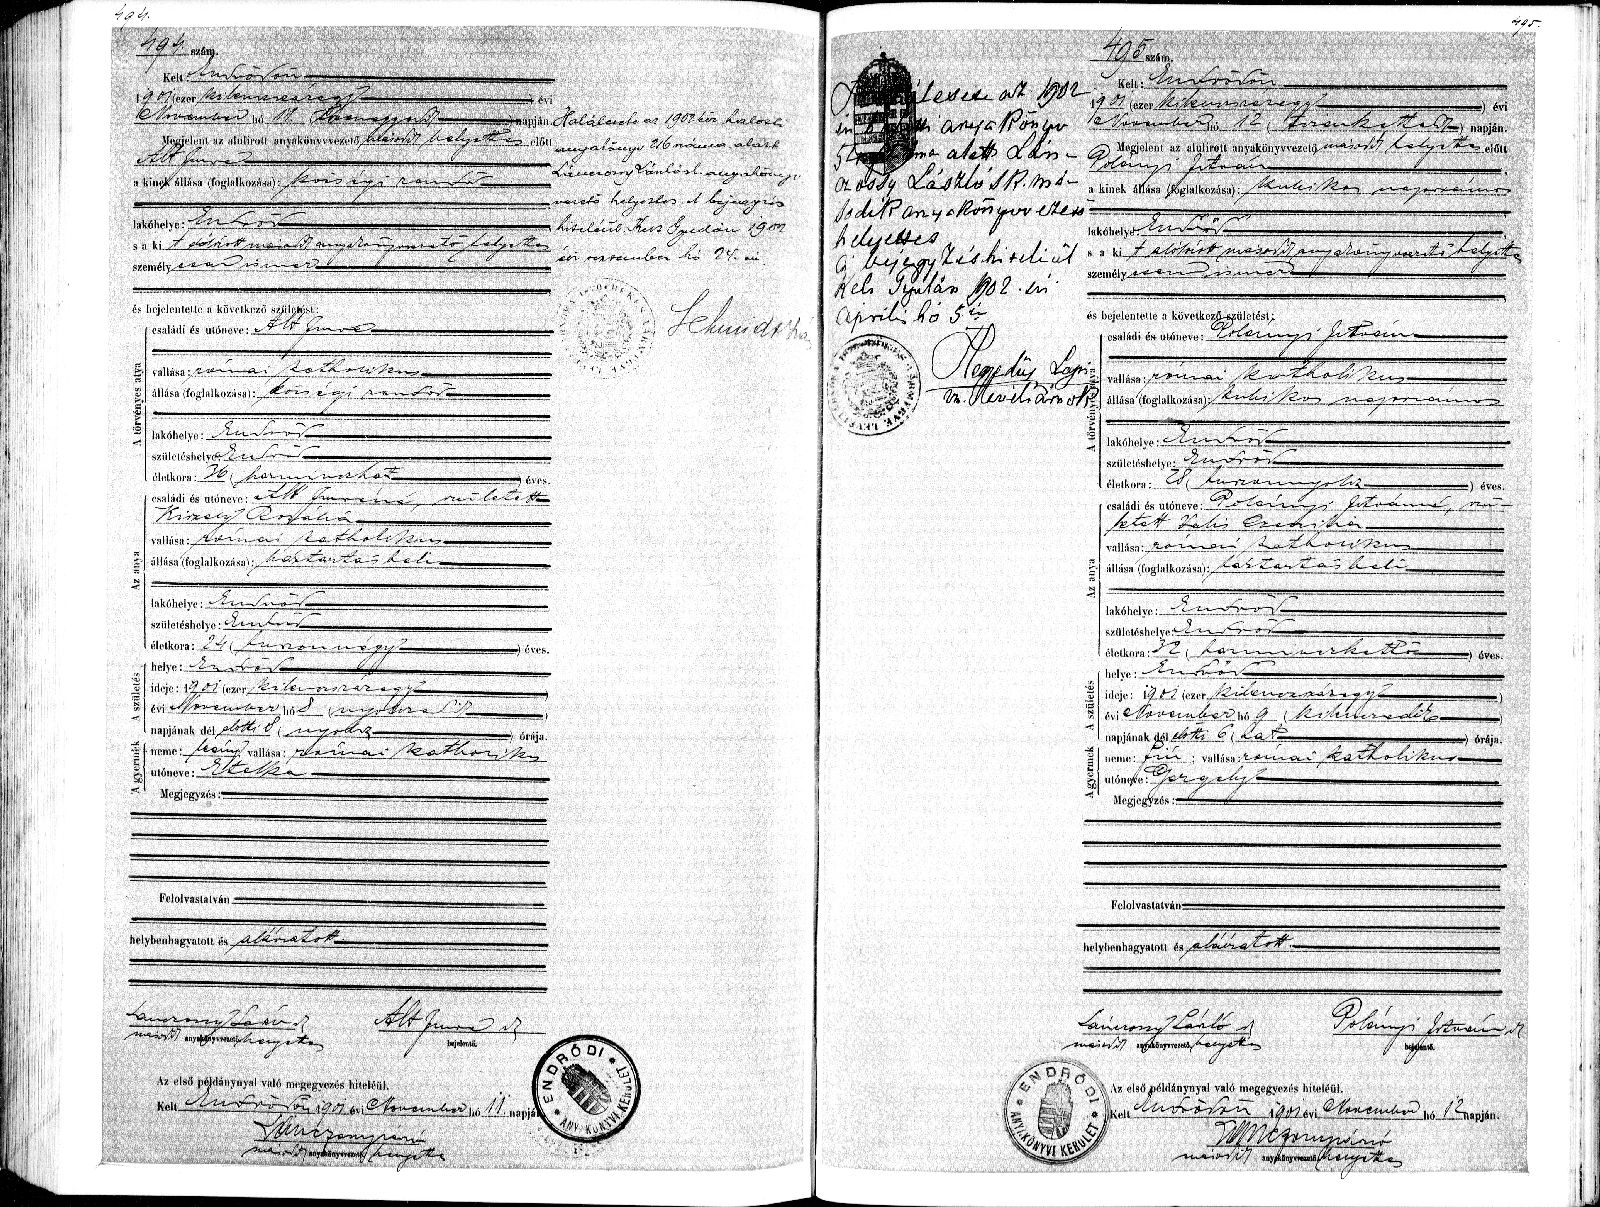 494.
494 szám.
Kelt: Endrődön
1901 (ezer kilenczszázegy) évi
November hó 11 (tizenegyedik) napján.
Megjelent az alulirott anyakönyvvezető második helyettes előtt
Alt Imre
a kinek állása (foglalkozása): községi rendőr
lakóhelye: Endrőd
s a ki t alólirott második anyakönyvvezető helyettes
személyesen ismer
és bejelentette a következő születést:
A törvényes atya
családi és utóneve: Alt Imre
vallása: római katholikus
állása (foglalkozása): községi rendőr
lakóhelye: Endrőd
születéshelye: Endrőd
életkora: 36 (harminczhat) éves.
Az anya
családi és utóneve: Alt Imréné, született
Rozália
vallása: római katholikus
állása (foglalkozása): háztartásbeli
lakóhelye: Endrőd
születéshelye: Endrőd
életkora: 24 (huszonnégy) éves.
A születés
helye: Endrőd
ideje: 1901 (ezer kilenczszázegy)
évi November hó 8 (nyolczadik)
napjának dél előtti 8 (nyolcz) órája.
A gyermek
neme: leány vallása: római katholikus
utóneve: Etelka
Megjegyzés:
Felolvastatván
helybenhagyatott és aláiratott
Lánczossy László Alt Imre
második anyakönyvvezető helyettes bejelentő.
Az első példánynyal való megegyezés hiteléül.
Kelt Endrődön 1901 évi November hó 11. napján
második anyakönyvvezető helyettes
ENDRŐDI ANYAKÖNYVI KERÜLET
az 1902 évi halotti
anyakönyv 216 száma alatt
László s.k. anyakönyv
vezető helyettes. A bejegyzés
hiteléül. Kelt Gyulán 1902
évi november hó 24. én
495.
495 szám.
Kelt: Endrődön
1901 (ezer kilenczszázegy) évi
November hó 12 (tizenkettedik) napján.
Megjelent az alulirott anyakönyvvezető második helyettes előtt
Polányi István
a kinek állása (foglalkozása): kubikos napszámos
lakóhelye: Endrőd
s a ki t alólirott második anyakönyvvezető helyettes
személyesen ismer
és bejelentette a következő születést:
A törvényes atya
családi és utóneve: Polányi István
vallása: római katholikus
állása (foglalkozása): kubikos napszámos
lakóhelye: Endrőd
születéshelye: Endrőd
életkora: 28 (huszonnyolcz) éves.
Az anya
családi és utóneve: Polányi Istvánné, szü-
letett
vallása: római katholikus
állása (foglalkozása): háztartásbeli
lakóhelye: Endrőd
születéshelye: Endrőd
életkora: 32 (harminczkettő) éves.
A születés
helye: Endrőd
ideje: 1901 (ezer kilenczszázegy)
évi November hó 9 (kilenczedik)
napjának dél előtti 6 (hat) órája.
A gyermek
neme: fiú; vallása: római katholikus
utóneve: Gergely
Megjegyzés:
Felolvastatván
helybenhagyatott és aláiratott.
Lánczossy László Polányi István
második anyakönyvvezető helyettes bejelentő.
Az első példánynyal való megegyezés hiteléül.
Kelt Endrődön 1901 évi November hó 12 napján.
második anyakönyvvezető helyettes
ENDRŐDI ANYAKÖNYVI KERÜLET
az 1902
évi anyakönyv
alatt Lán-
czossy László s.k. má-
sodik anyakönyvvezető
helyettes
A bejegyzés hiteléül
Kelt Gyulán 1902. évi
április hó 5én
Hegedűs